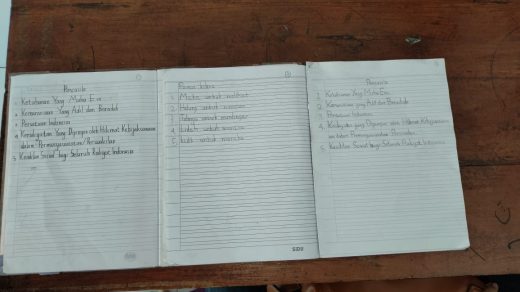 Pancasila
1 Ketuhanan Yang Maha Esa
2 Kemanusiaan Yang Adil dan Beradab
3 Persatuan Indonesia
4 Kerakyatan Yang Dipimpin oleh Hikmat Kebijaksanaan
dalam Permusyawaratan/Perwakilan
5 Keadilan Sosial bagi Seluruh Rakyat Indonesia
Panca Indra
1 Mata untuk melihat
2 Hidung untuk
3 Telinga untuk mendengar
4 Lidah untuk
5 Kulit untuk
SIDU
Pancasila
1 Ketuhanan Yang Maha Esa
2 Kemanusiaan yang Adil dan Beradab
3 Persatuan Indonesia
4 yang Dipimpin oleh Hikmat Kebijaksanaan
dalam Permusyawaratan
5 Keadilan Sosial bagi Seluruh Rakyat Indonesia